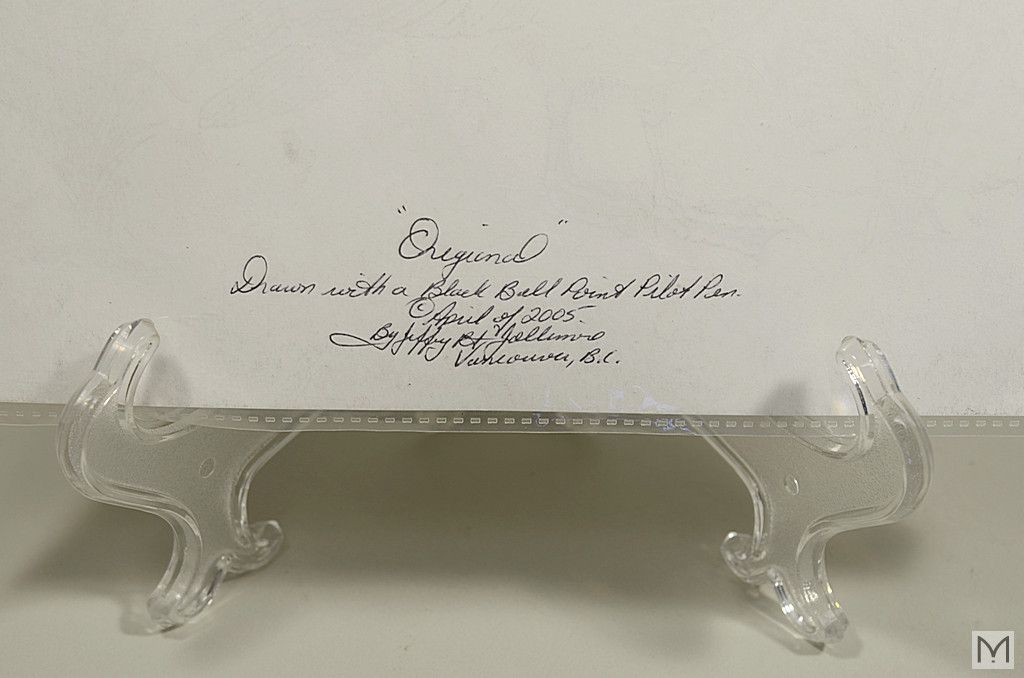 "Original"
Drawn with a Black Ball Point Pilot Pen.
© April of 2005.
By
Vancouver, B.C.
M